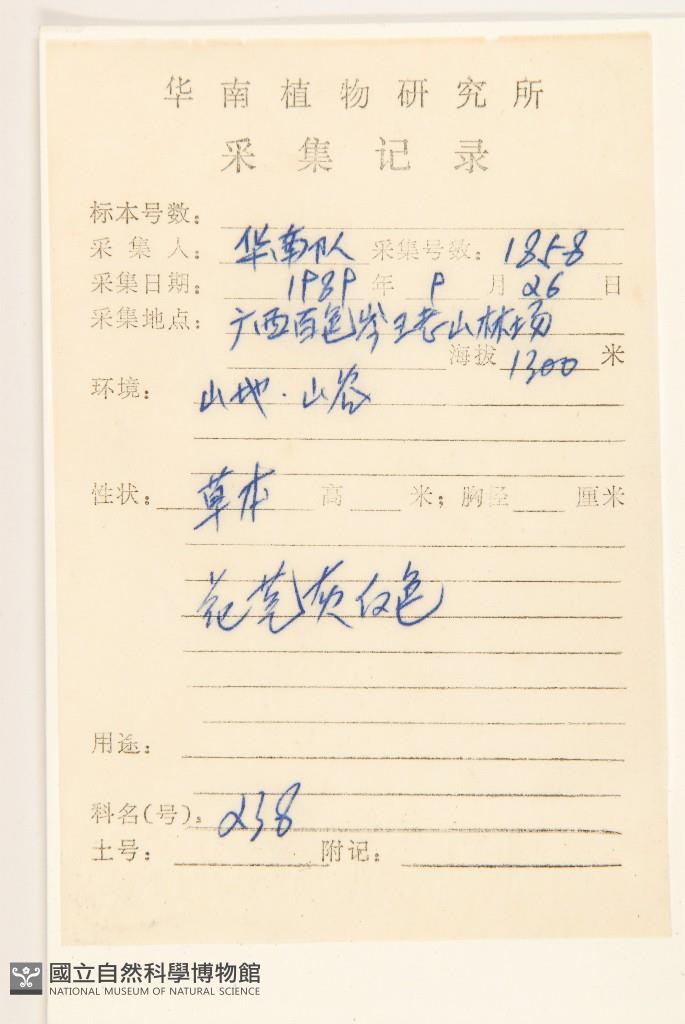 华南植物研究所
采集记录
标本号数：
采集人：华南队 采集号数：1858
采集日期：1989年9月26日
采集地点：广西百色岑王老山林场
海拔1300米
环境：山地．山谷
性状：草本 高 米；胸径 厘米
花萼灰白色
用途：
科名(号)：238
土号： 附记：
國立自然科學博物館
NATIONAL MUSEUM OF NATURAL SCIENCE